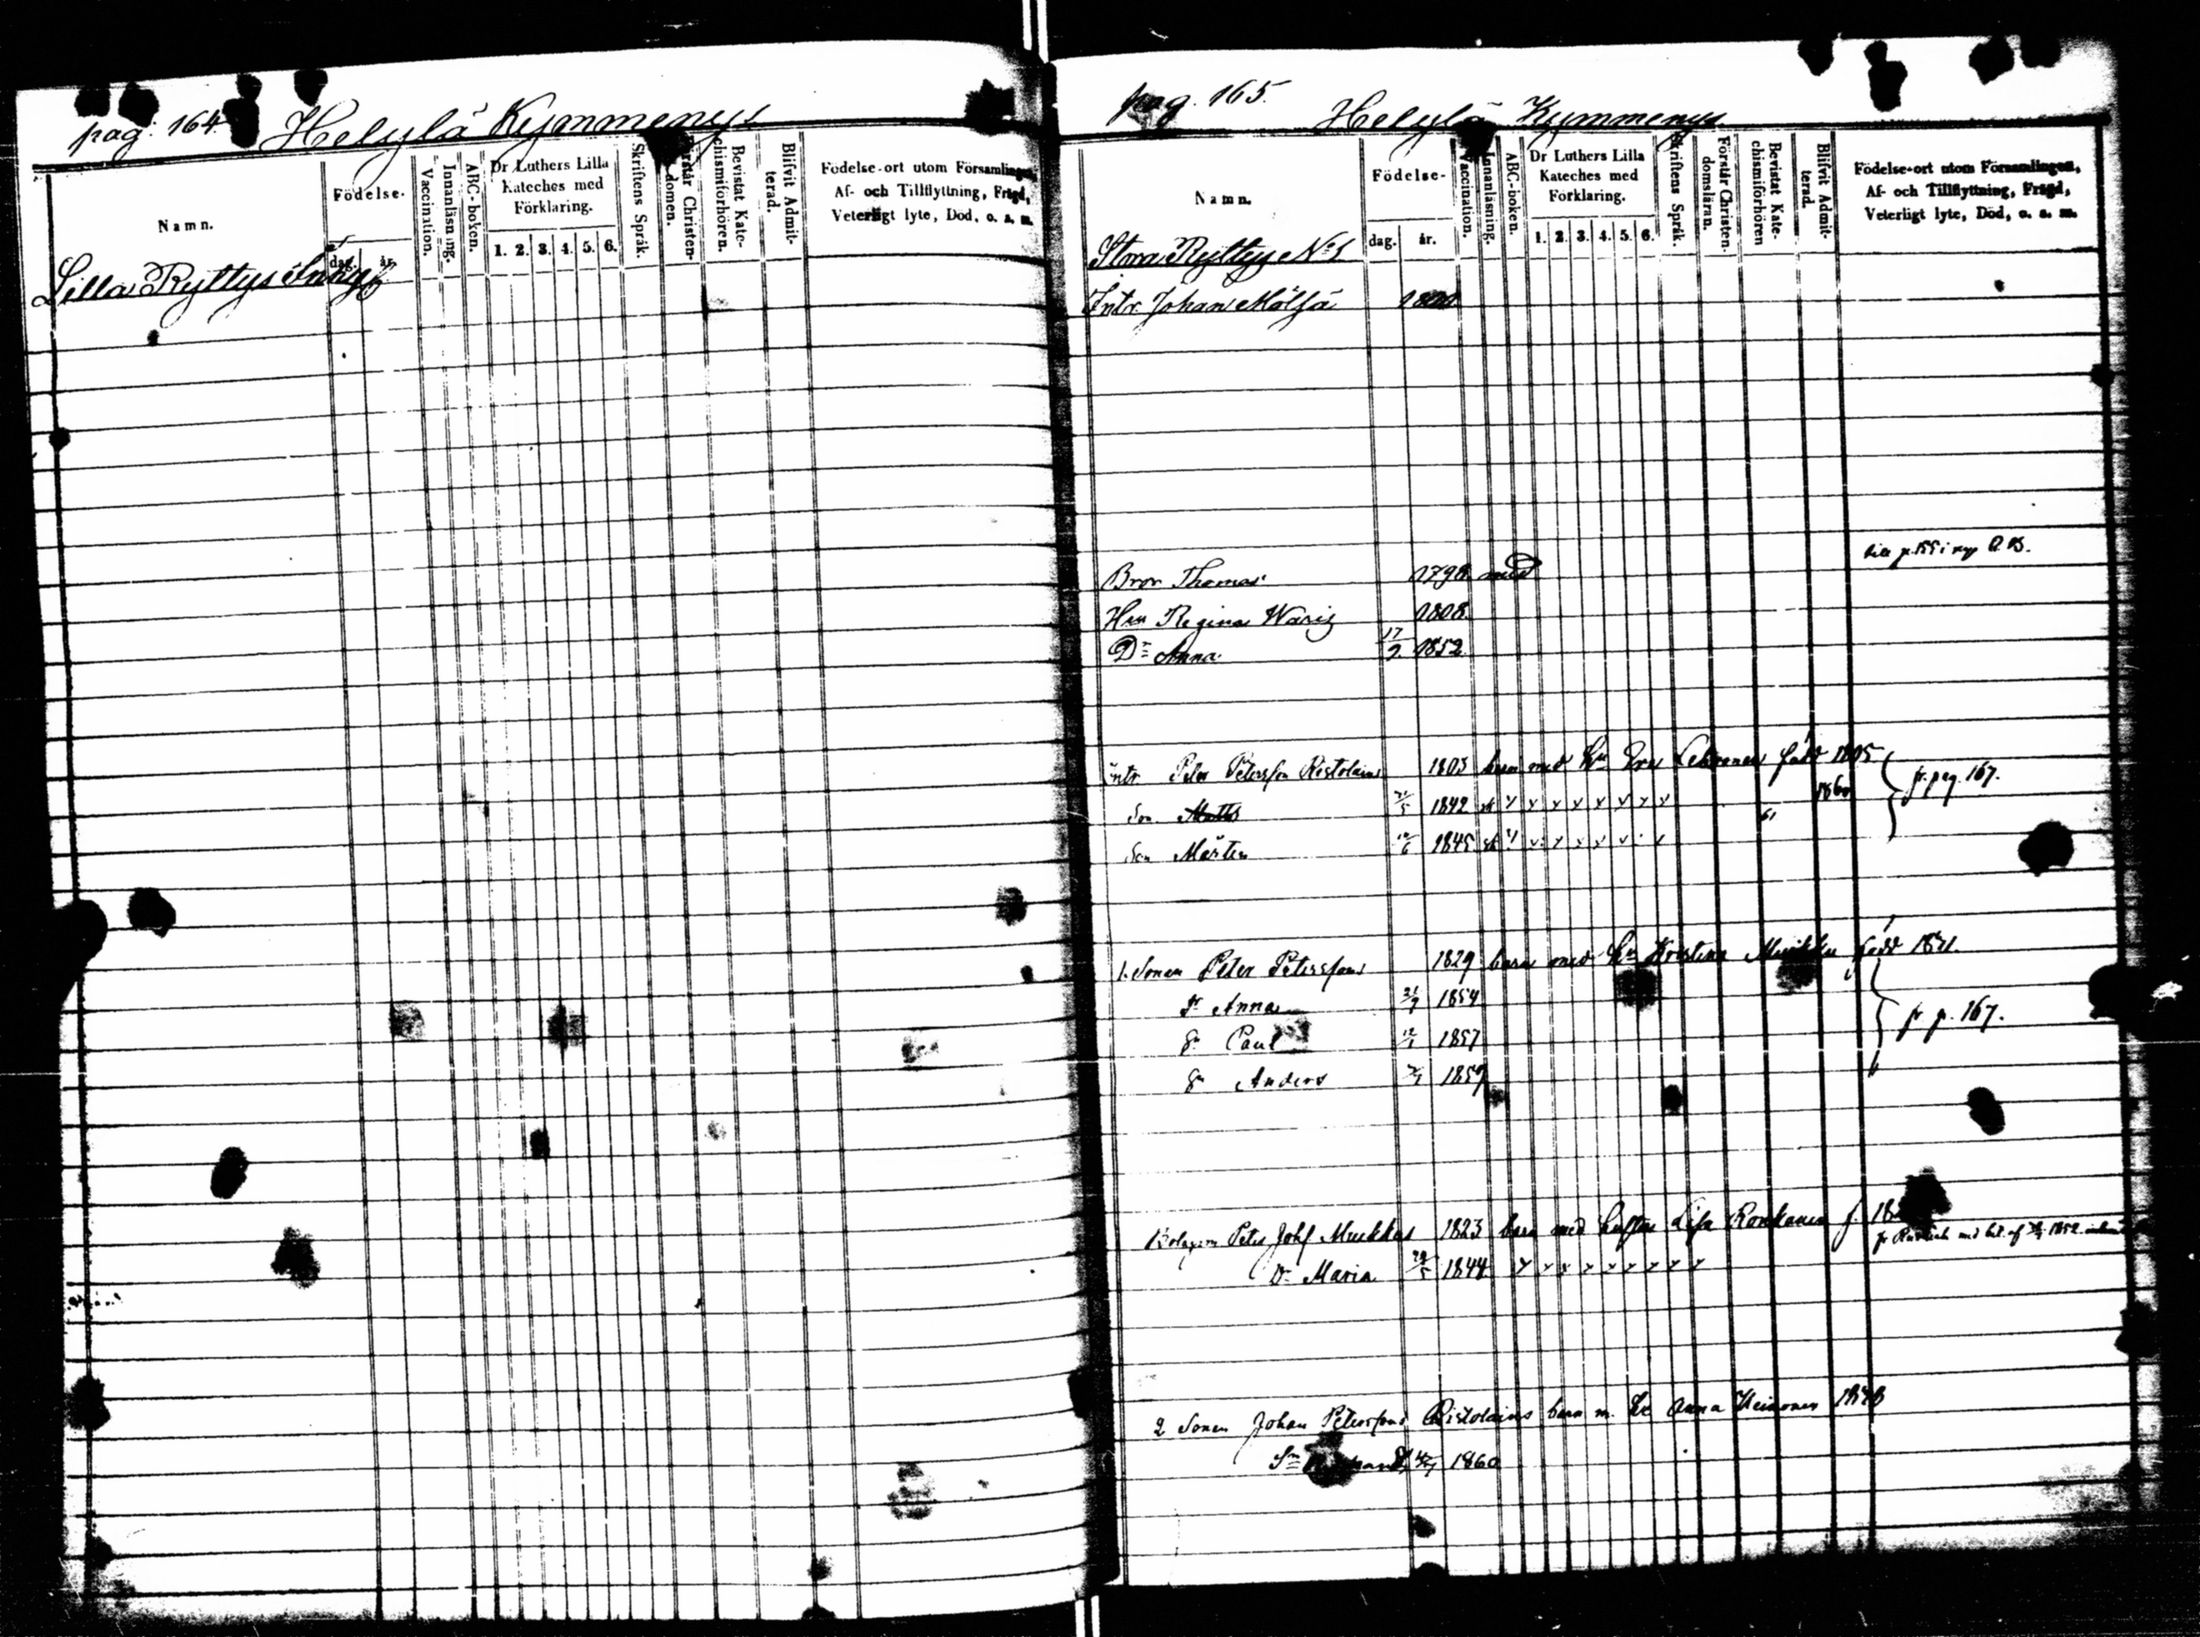 pag. 164. Helylä Kymmenys
Namn.
Födelse-
dag. år.
Vaccination.
Innanläsning.
ABC-boken.
Dr Luthers Lilla
Kateches med
Förklaring.
1. 2. 3. 4. 5. 6.
Skriftens Språk.
domen.
Bevistat Kate-
chismiförhören.
Blifvit Admit-
terad.
Födelse-ort utom Församlingen,
Af- och Tillflyttning, Frägd,
Veterligt lyte, Död, o. s. m.
Lilla Ryttys
pag. 165. Helylä Kymmenys
Namn.
Födelse-
dag. år.
Vaccination.
Innanläsning.
ABC-boken.
Dr Luthers Lilla
Kateches med
Förklaring.
1. 2. 3. 4. 5. 6.
Skriftens Språk.
Förstår Christen-
domsläran.
Bevistat Kate-
chismiförhören
Blifvit Admit-
terad.
Födelse-ort utom Församlingen,
Af- och Tillflyttning, Frägd,
Veterligt lyte, Död, o. s. m.
Stora Ryttys No 1
Intr. Johan Mölsä 1800
Bror Thomas 1798 med
Hu Regina Wariz 1808.
Dr Anna 17/9. 1852
intr Peter Petersson Ristolain 1803 barn med hu Eva född 1805
fr. pag. 167.
Son Matts 1842 61 1860
Son Mårten 1845
1. Sonen Peter Peterssons 1829 barn med hu Kristina född 1831.
dr Anna 21/7 1854
fr p. 167.
Sn Paul 1857
Sn Anders 1859
Bolagsm Peter Johs Muukkas 1823 barn med hustru Lisa Ronkanen f.
Dr Maria 1844
2 Sonen Johan Peterssons Ristolains barn m. hu Anna Heinonen
Sn 1860